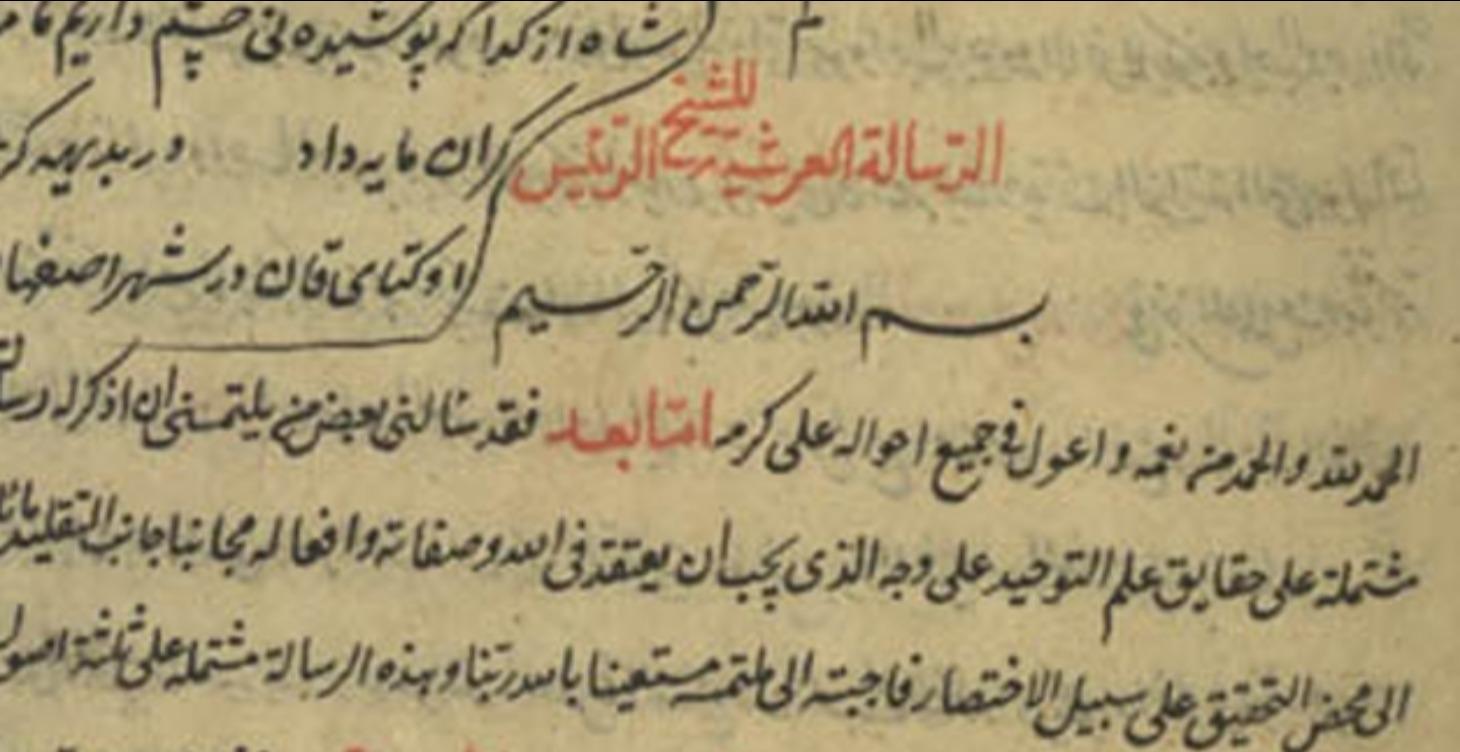 شاه از كدا كه پوشيده نى چشم داريم ما
للشيخ
الرسالة العرشية الرئيس
كران مايه داد در بديهه
اوكتاى قاآن در شهر اصفها
بسم الله الرحمن الرحيم
الحمد لله والحمد من نعمه واعول فى جميع احواله على كرمه امّا بعد فقد سئالنى بعض من يلتمسنى ان اذكر له رسالة
مشتملة على حقايق علم التوحيد على وجه الذى يجب ان يعتقد فى الله وصفاته وافعاله مجانبا جانب التقليد مائلا
الى محض التحقيق على سبيل الاختصار فاجبته الى ملتمسه مستعينا بالله ربّنا وهذه الرسالة مشتملة على ثلثة اصول